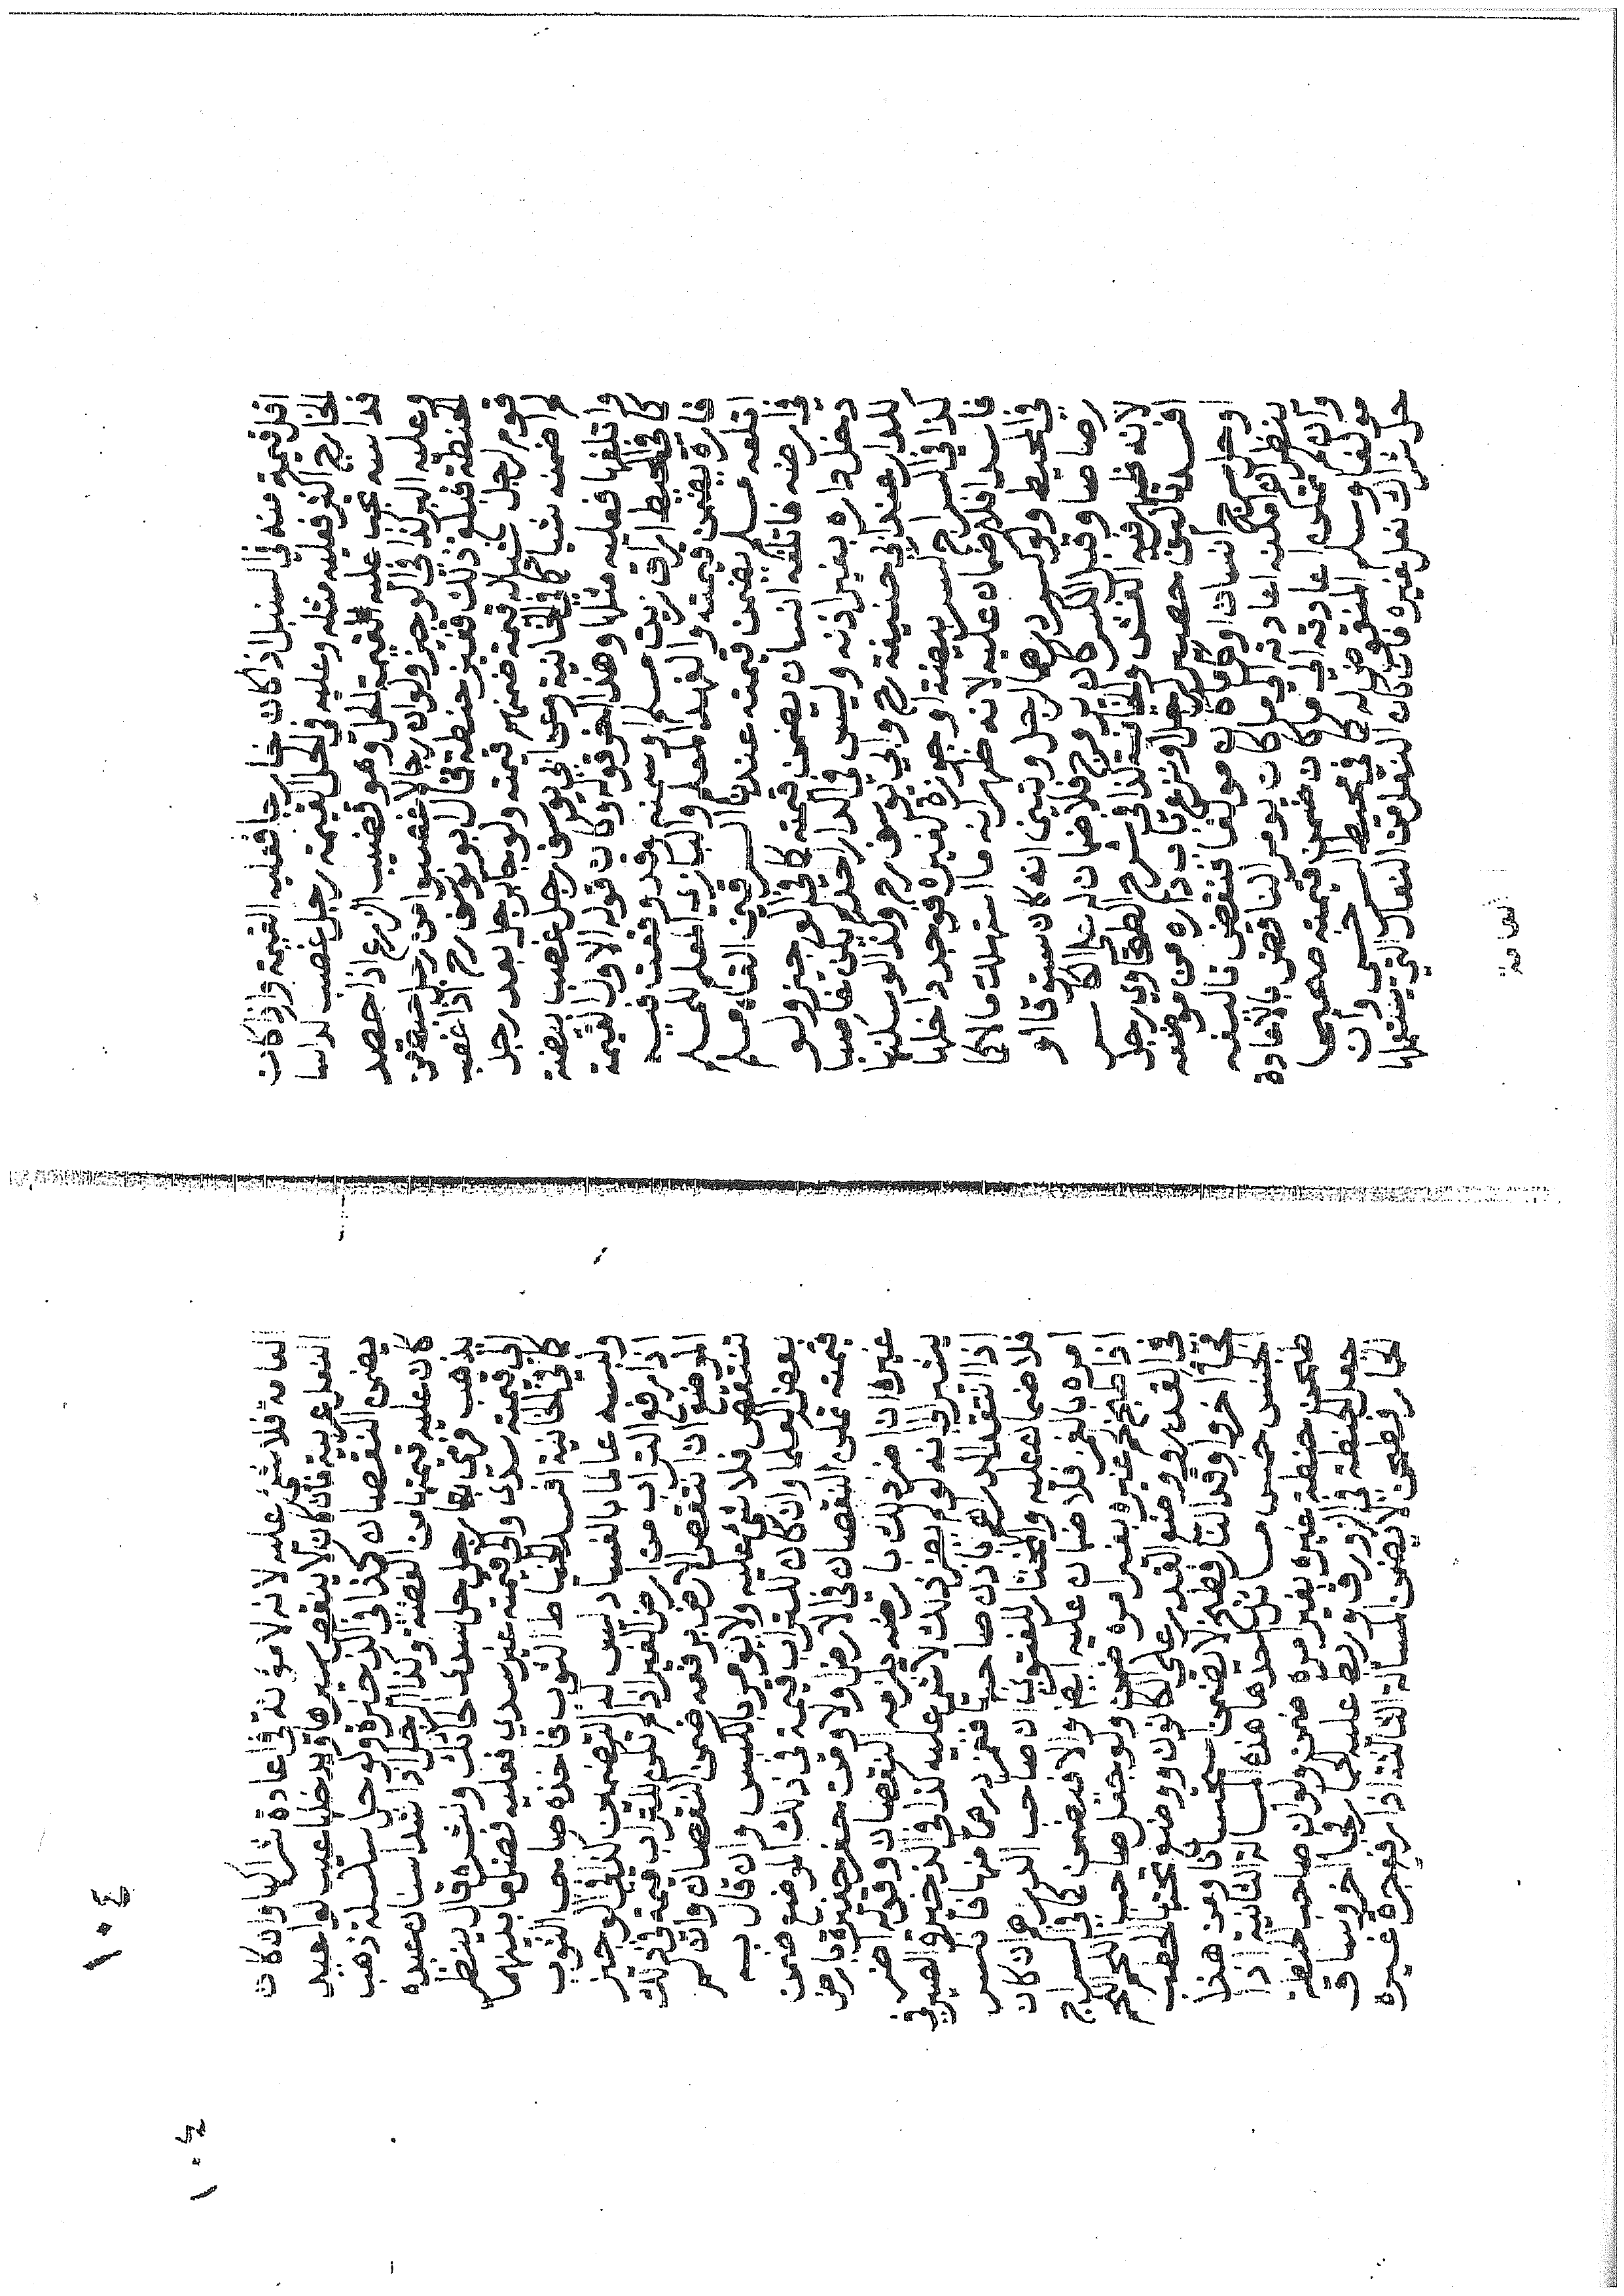 اقل قيمة منه في السنبل اذ كان خارجا فعليه القيمة واذا كان
الخارج اكثر فعليه مثله وعليه في الحل القيمة رجل غصب كداسا
فداسه يجب عليه القيمة للحل وهو قضيب الزرع اذا حصد
وعليه البر كذا في الوجيز ولو ان رجالا غصبوا من رجل حبة من
الحنطة فبلغ ذلك قفيز حنطة قال ابو يوسف رح اذا غصب
قوم لرجل شيئا له قيمة ضمنهم قيمته ولو جا رجل بعد رجل
لم اضمنه شيئا كما في الخانية وعن ابي يوسف رجل غصب بيضة
واتلفها فعليه مثلها وهذا اخر قوله وكان قوله الاول القيمة
كما في المحيط اراق زيت مسلم او سمنه وقد وقعت فيه
فارة يضمن قيمته والفهد المعلم والبازي المعلم للمسلم
اتلفه مسلم يضمن قيمته عندنا السرقين القاه مسلم
في ارضه فاتلفه انسان يضمن قيمته كما في الوجيز ولو
دخل داره بغير اذنه وليس في الدار احد لم يكن غاصبا
للدار عند ابي حنيفة رح وابي يوسف رح وكذا لو سكنها
كذا في السراج كسر بيضة او جوزة لغيره فوجد داخلها
فاسدا فلا ضمان عليه لانه ظهر انه ما استهلك مالا كما
في المحيط ولو كسر درهما لرجل وتبين انه كان ستوقا او
رصاصا وقبل الكسر كان يروج فلا ضمان له على الكاسر
لانه ظهر فيه الغش والخيانة كذا في شرح الطحاوي رجل
افسد تاليف حصير رجل او نزع باب داره من موضعه
او حل سرج انسان او كل ما كان مولفا فنقض تاليفه
ينظر ان امكن اعادته الى ما كان يومر الناقض بالاعادة
وان لم يمكن اعادته الى ما كان ضمن قيمته صحيحا
مولفا وسلم المنقوض له كما في محيط السرخسي وان
حل شراك نعل غيره فان كان النعل من النعال التي يستعملها
العامة
العامة فلا شي عليه لانه لا مؤنة في اعادة شراكها وان كان
النعل عربية فان كان لا ينقص سيرها ويدخلها عيب لو اعيد
يضمن النقصان كذا في الذخيرة ولو حل سلسلة ذهب
كان عليه قيمتها من الفضة وكذا الرجل اذا شد اسنان عبده
بذهب فرمى بها رجل حل سدى حائك ونشره قال ينظر
الى قيمته سدى والى قيمته غير سدى فعليه فضل ما بينهما
كما في الخانية افسد الخياط الثوب فاخذه صاحب الثوب
ولبسه عالما بالفساد ليس له التضمين كذا في الوجيز
اذا رفع التراب من ارض الغير ان لم يكن للتراب قيمة في ذلك
الموضع ان انتقص الارض برفعه ضمن النقصان وان لم
تنتقص فلا شي عليه ولا يومر بالكبس وان قال به
بعض العلما وان كان للتراب قيمة في ذلك الموضع ضمن
قيمته تمكن النقصان في الارض ولا ومن حفر حفيرة بارض
غيره ان اضر ذلك بارضه يلزمه النقصان وقوله اضر
يشير الى انه لو لم يضر ذلك لا شي عليه كذا في الذخيرة الصيرفي
اذا انتقد الدراهم باذن صاحبها فغمز درهما منها فانكسر
فلا ضمان عليه والمختار للفتوى ان صاحب الدرهم ان كان
امره بالغمز فلا ضمان عليه ايضا والا فيضمن كما في السراج
اذا طبخ لحم غيره بغير امره ضمن ولو جعل صاحب اللحم اللحم
في القدر ووضع القدر على الكانون ووضع تحتها الحطب
فجا اخر واوقد النار فطبخ لا يضمن استحسانا ومن هذا
الجنس خمس مسائل احدها هذه المسالة الثانية اذا
طحن حنطة غيره بغير امره ضمن ولو ان صاحب الحنطة
جعل الحنطة في الزورق وربط عليه الحمار فجا اخر وساق
الحمار فطحن لا يضمن المسالة الثالثة اذا رفع جرة غيره
١٠٤
١٠٤